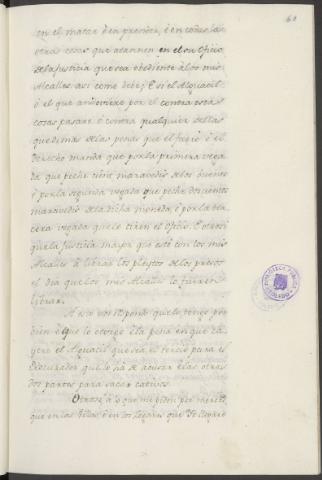 61
en el matar, ó en prender, ó en todas las
otras cosas que atannen en el su Oficio
de la Justicia que sea obediente á los mis
Alcalles asi como debe; E si el Alguacil
ó el que anduviere por él contra estas
cosas pasare ó contra qualquier dellas
que demas de las penas que el fuero ó el
derecho manda que por la primera vega
da que peche cient maravedis de los buenos
é por la segunda vegada que peche doscientos
maravedis de la dicha moneda, é por la ter
cera vegada que le tiren el Oficio. E otrosi
que la Justicia mayor que esté con los mis
Alcalles á librar los pleytos de los presos
el dia que los mis Alcalles los fueren
librar.
A esto vos respondo que lo tengo por
bien é que lo otorgo é la pena en que ca
yere el Alguacil que sea el tercio para el
Procurador que lo ha de acusar é las otras
dos partes para sacar cativos.
Otrosi á lo que me piden por merced
que en las Villas é en los logares que Yo llegare
BIBLIOTECA PUBLICA
TOLEDO